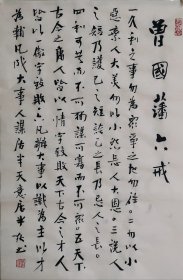 曾國藩六戒
一久利之事勿為眾爭之地勿往二勿以小
惡棄人大美勿以小怨忘人大恩三說人
之短乃護己之短誇己之長乃忌人之長
四利可共而不可獨謀可寡而不可眾五天下
古今之庸人皆以惰字致敗天下古今之才人
皆以傲字致敗六凡辦大事以識為主以才
為輔凡成大事人謀居半天意居半